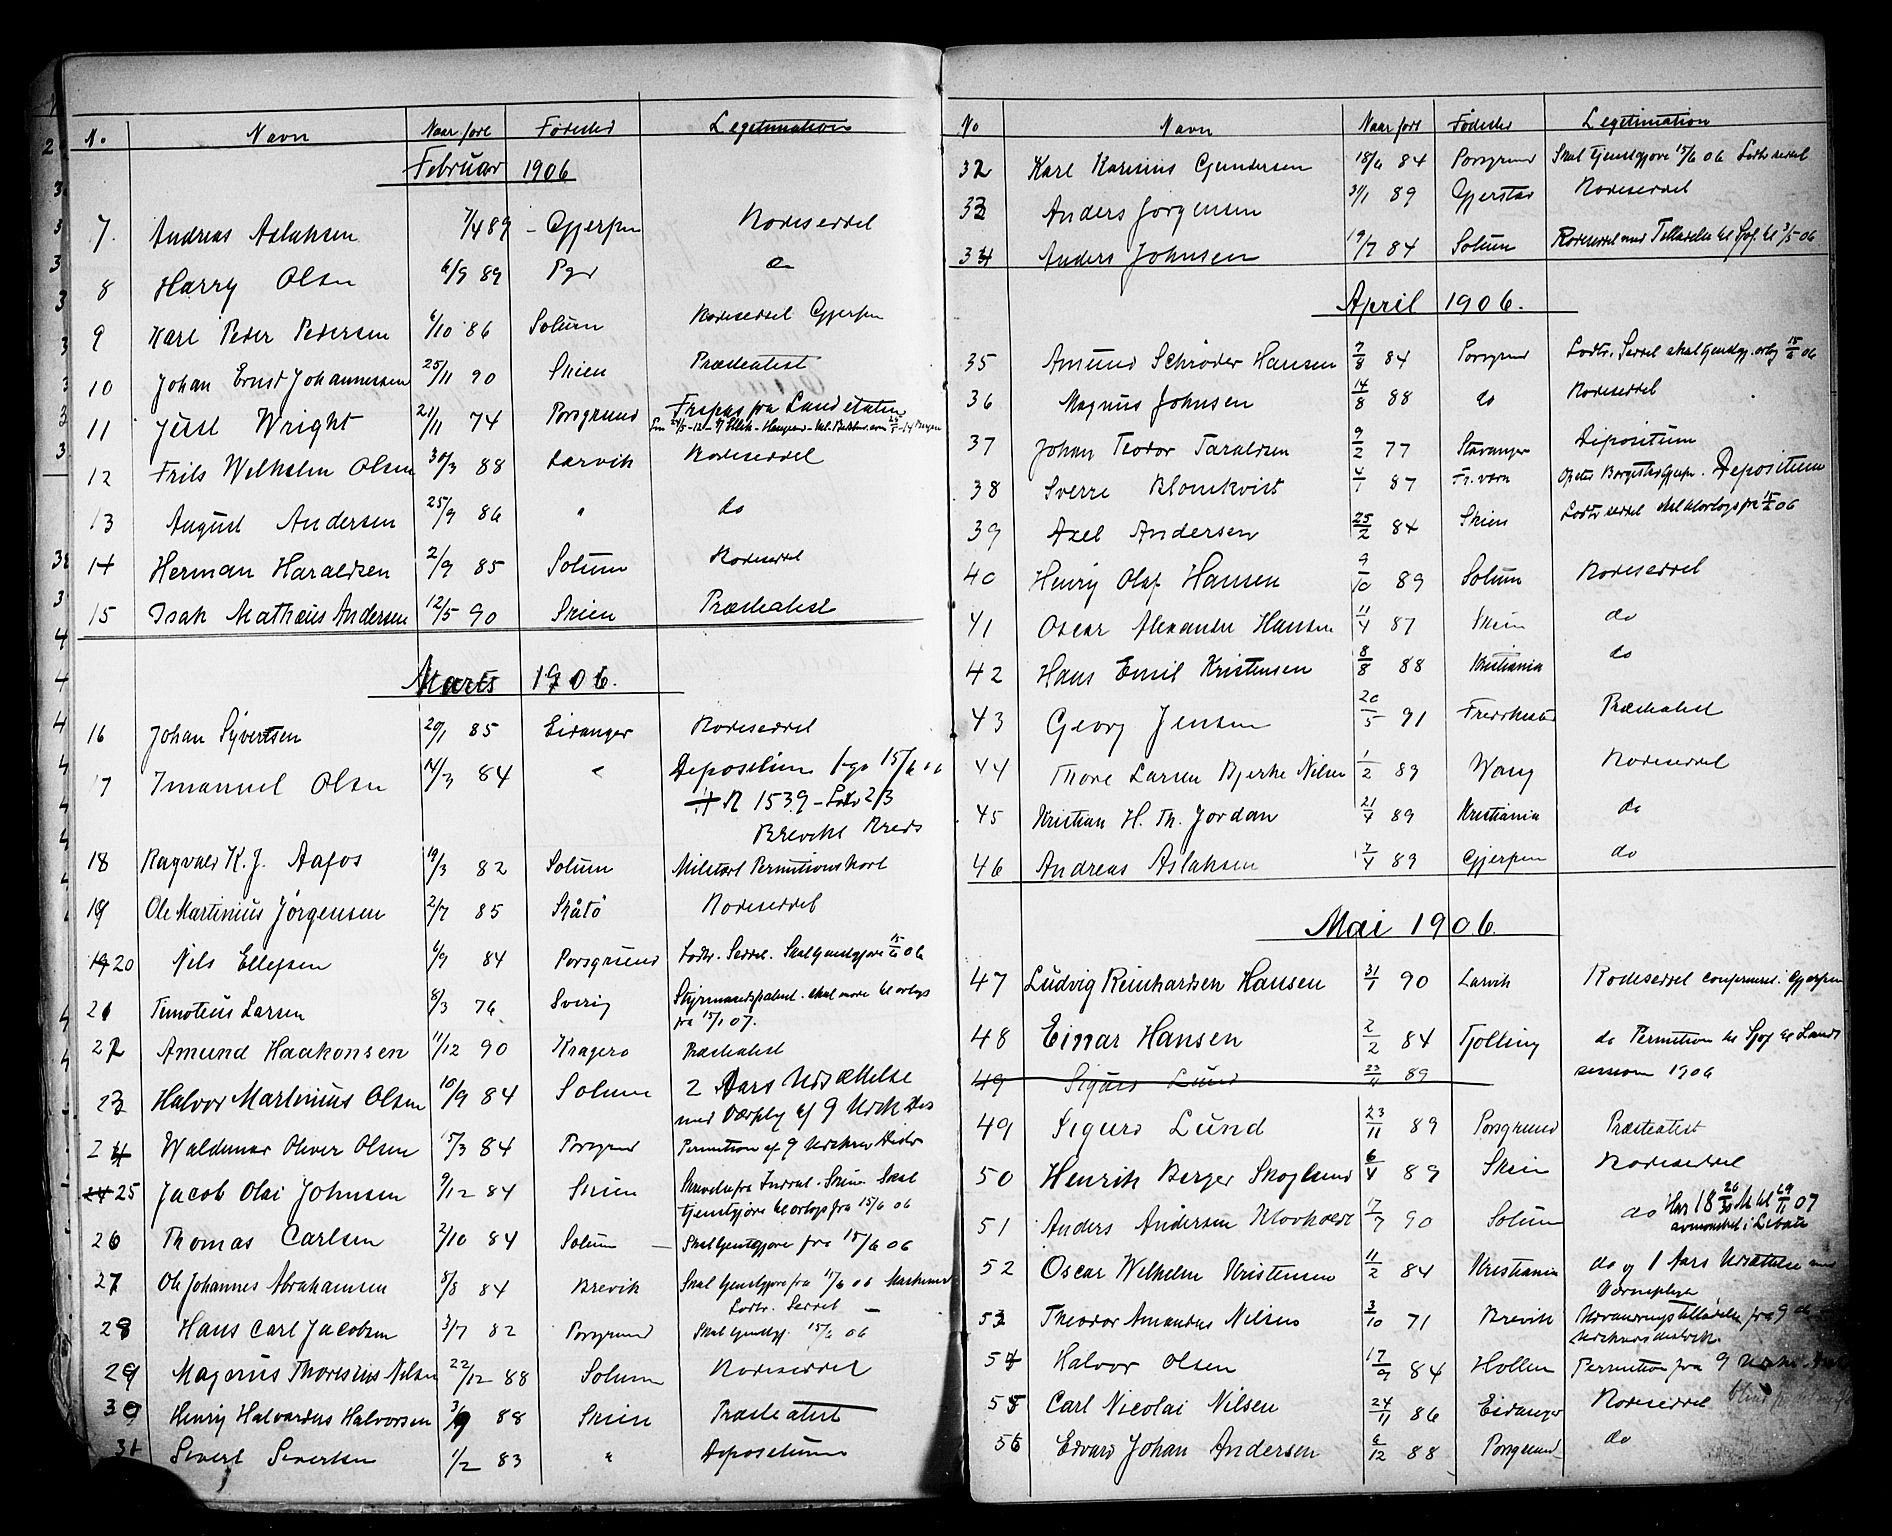 No. Navn Naar født Fødested Legitimation
Februar 1906
7. Andreas Aslaksen 7/4 89 - Gjerpen Rodeseddel
8 Harry Olsen 6/9 89 Pgr do
9 Karl Peder Pedersen 6/10 86 Solum Rodeseddel Gjerpen
10 Johan Ernst Johannessen 25/11 90 Skien Præsteatest
11 Just Wright 21/11 74 Porsgrund Fripas fra Landetaten
12 Frits Wilhelm Olsen 30/3 88 Larvik Rodeseddel
13 August Andersen 25/9 86 " do
14 Herman Haraldsen 2/9 85 Solum Rodeseddel
15 Isak Mathæus Andersen 12/5 90 Skien Præsteatest
Marts 1906.
16 Johan Syvertsen 20/1 85 Eidanger Rodeseddel
17 Imanuel Olsen 14/3 84 " Depositum 15/6 06
N 1539 - Lodtr 2/3
Brevik Kreds
18 Ragvald K. J. Aafos 19/3 82 Solum Militært Permitionskort
19 Ole Martinius Jørgensen 2/7 85 Skåtö Rodeseddel
20 Nils Ellefsen 6/9 84 Porsgrund Lodtr. Seddel. Skal tjenstgjøre 15/6 06
21 Timoteus Larsen 8/3 76 Sverig Styrmandspatent. skal møde til orlogs
fra 15/1 07.
22 Amund Haakonsen 11/12 90 Kragerø Præsteatest
23 Halvor Martinius Olsen 10/9 84 Solum 2 Aars Udsættelse
med Værnpl. af 9 Udsk Dis
24 Waldemar Oliver Olsen 15/3 84 Porsgrund Permition af 9 Udskrivn Distr
25 Jacob Olai Johnsen 9/12 84 Skien Skrivelse fra Indrul. Skien Skal
tjenstgjøre til orlogs fra 15/6 06
26 Thomas Carlsen 2/10 84 Solum - Skal tjenstgjøre fra 15/6 06
27 Ole Johannes Abrahamsen 8/8 84 Brevik Skal tjenstgjøre fra 15/6 06
Lodtr. Seddel -
28 Hans Carl Jacobsen 3/7 82 Porsgrund Skal tjenstgj. 15/6 06
29 Magnus Thoresius Nilsen 22/12 88 Solum Rodeseddel
30 Henry Halvardus Halvorsen 3/9 88 Skien Præsteatest
31 Sivert Sivertsen 1/2 83 " Depositum
No Navn Naar født Fødested Legitimation
32 Karl Karinius Gundersen 18/6 84 Porsgrund Skal tjenstgjøre 15/6 06 Lodtr seddel
33 Anders Jørgensen 31/1 89 Gjerstad Rodeseddel
34 Anders Johnsen 19/7 84 Solum Rodeseddel med Tilladelse til Sjøf. til 3/5 06
April 1906.
35 Amund Schrøder Hansen 7/8 84 Porsgrund Lodtr. Seddel skal tjenstgj. orlog 15/6 06
36 Magnus Johnsen 14/8 88 do Rodeseddel
37 Johan Teodor Taraldsen 9/2 77 Stavanger Depositum
38 Sverre Blomkvist 4/1 87 Fr. værn Depositum
39 Axel Andersen 25/2 84 Skien Lodtr seddel skal til orlogs fra 15/6 06
40 Henrij Olaf Hansen 9/10 89 Solum Rodeseddel
41 Oscar Alexander Hansen 11/4 87 Skien do
42 Hans Emil Kristensen 8/8 88 Kristiania do
43 Georg Jensen 20/5 91 Fredrikstad Præsteatest
44 Thore Larsen Bjerke Nilsen 1/2 89 Wang Rodeseddel
45 Kristian H. Th. Jordan 21/4 89 Kristiania do
46 Andreas Aslaksen 7/4 89 Gjerpen do
Mai 1906.
47 Ludvig Reinhardsen Hansen 31/1 90 Larvik Rodeseddel confermert i Gjerpen
48 Einar Hansen 2/2 84 Tjølling do Permition til Sjøf til Lands
session 1906
49 Sigurd Lund 23/11 89
49 Sigurd Lund 23/11 89 Porsgrund Præsteatest
50 Henrik Berger Skoglund 6/4 89 Skien Rodeseddel
51 Anders Andersen Klovholdt 17/7 90 Solum do
avmønstret i Libau
52 Oscar Wilhelm Kristensen 11/2 84 Kristiania do og 1 Aars Udsættelse med
Værnepligt
53 Theodor Amandus Nilsen 3/10 71 Brevik Udvandringstilladelse fra 9 de
Udskrivsdistrikt.
54 Halvor Olsen 17/9 84 Hollen Permition fra 9 Udskr.
55 Carl Nicolai Nilsen 24/11 86 Eidanger Rodeseddel
56 Edvard Johan Andersen 6/12 88 Porsgrund do